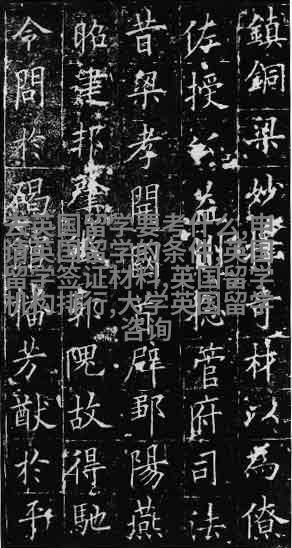 鎮銅梁妙奇材以為僚
佐授公益州總管府司法
昔梁孝開國首辟鄒陽燕
昭建邦肇郭隗故得馳
令問於碣播芳猷於平
去英国留学要考什么,申
请英国留学的条件,英国
留学签证材料,英国留学
机构排行,大学英国留学
咨询